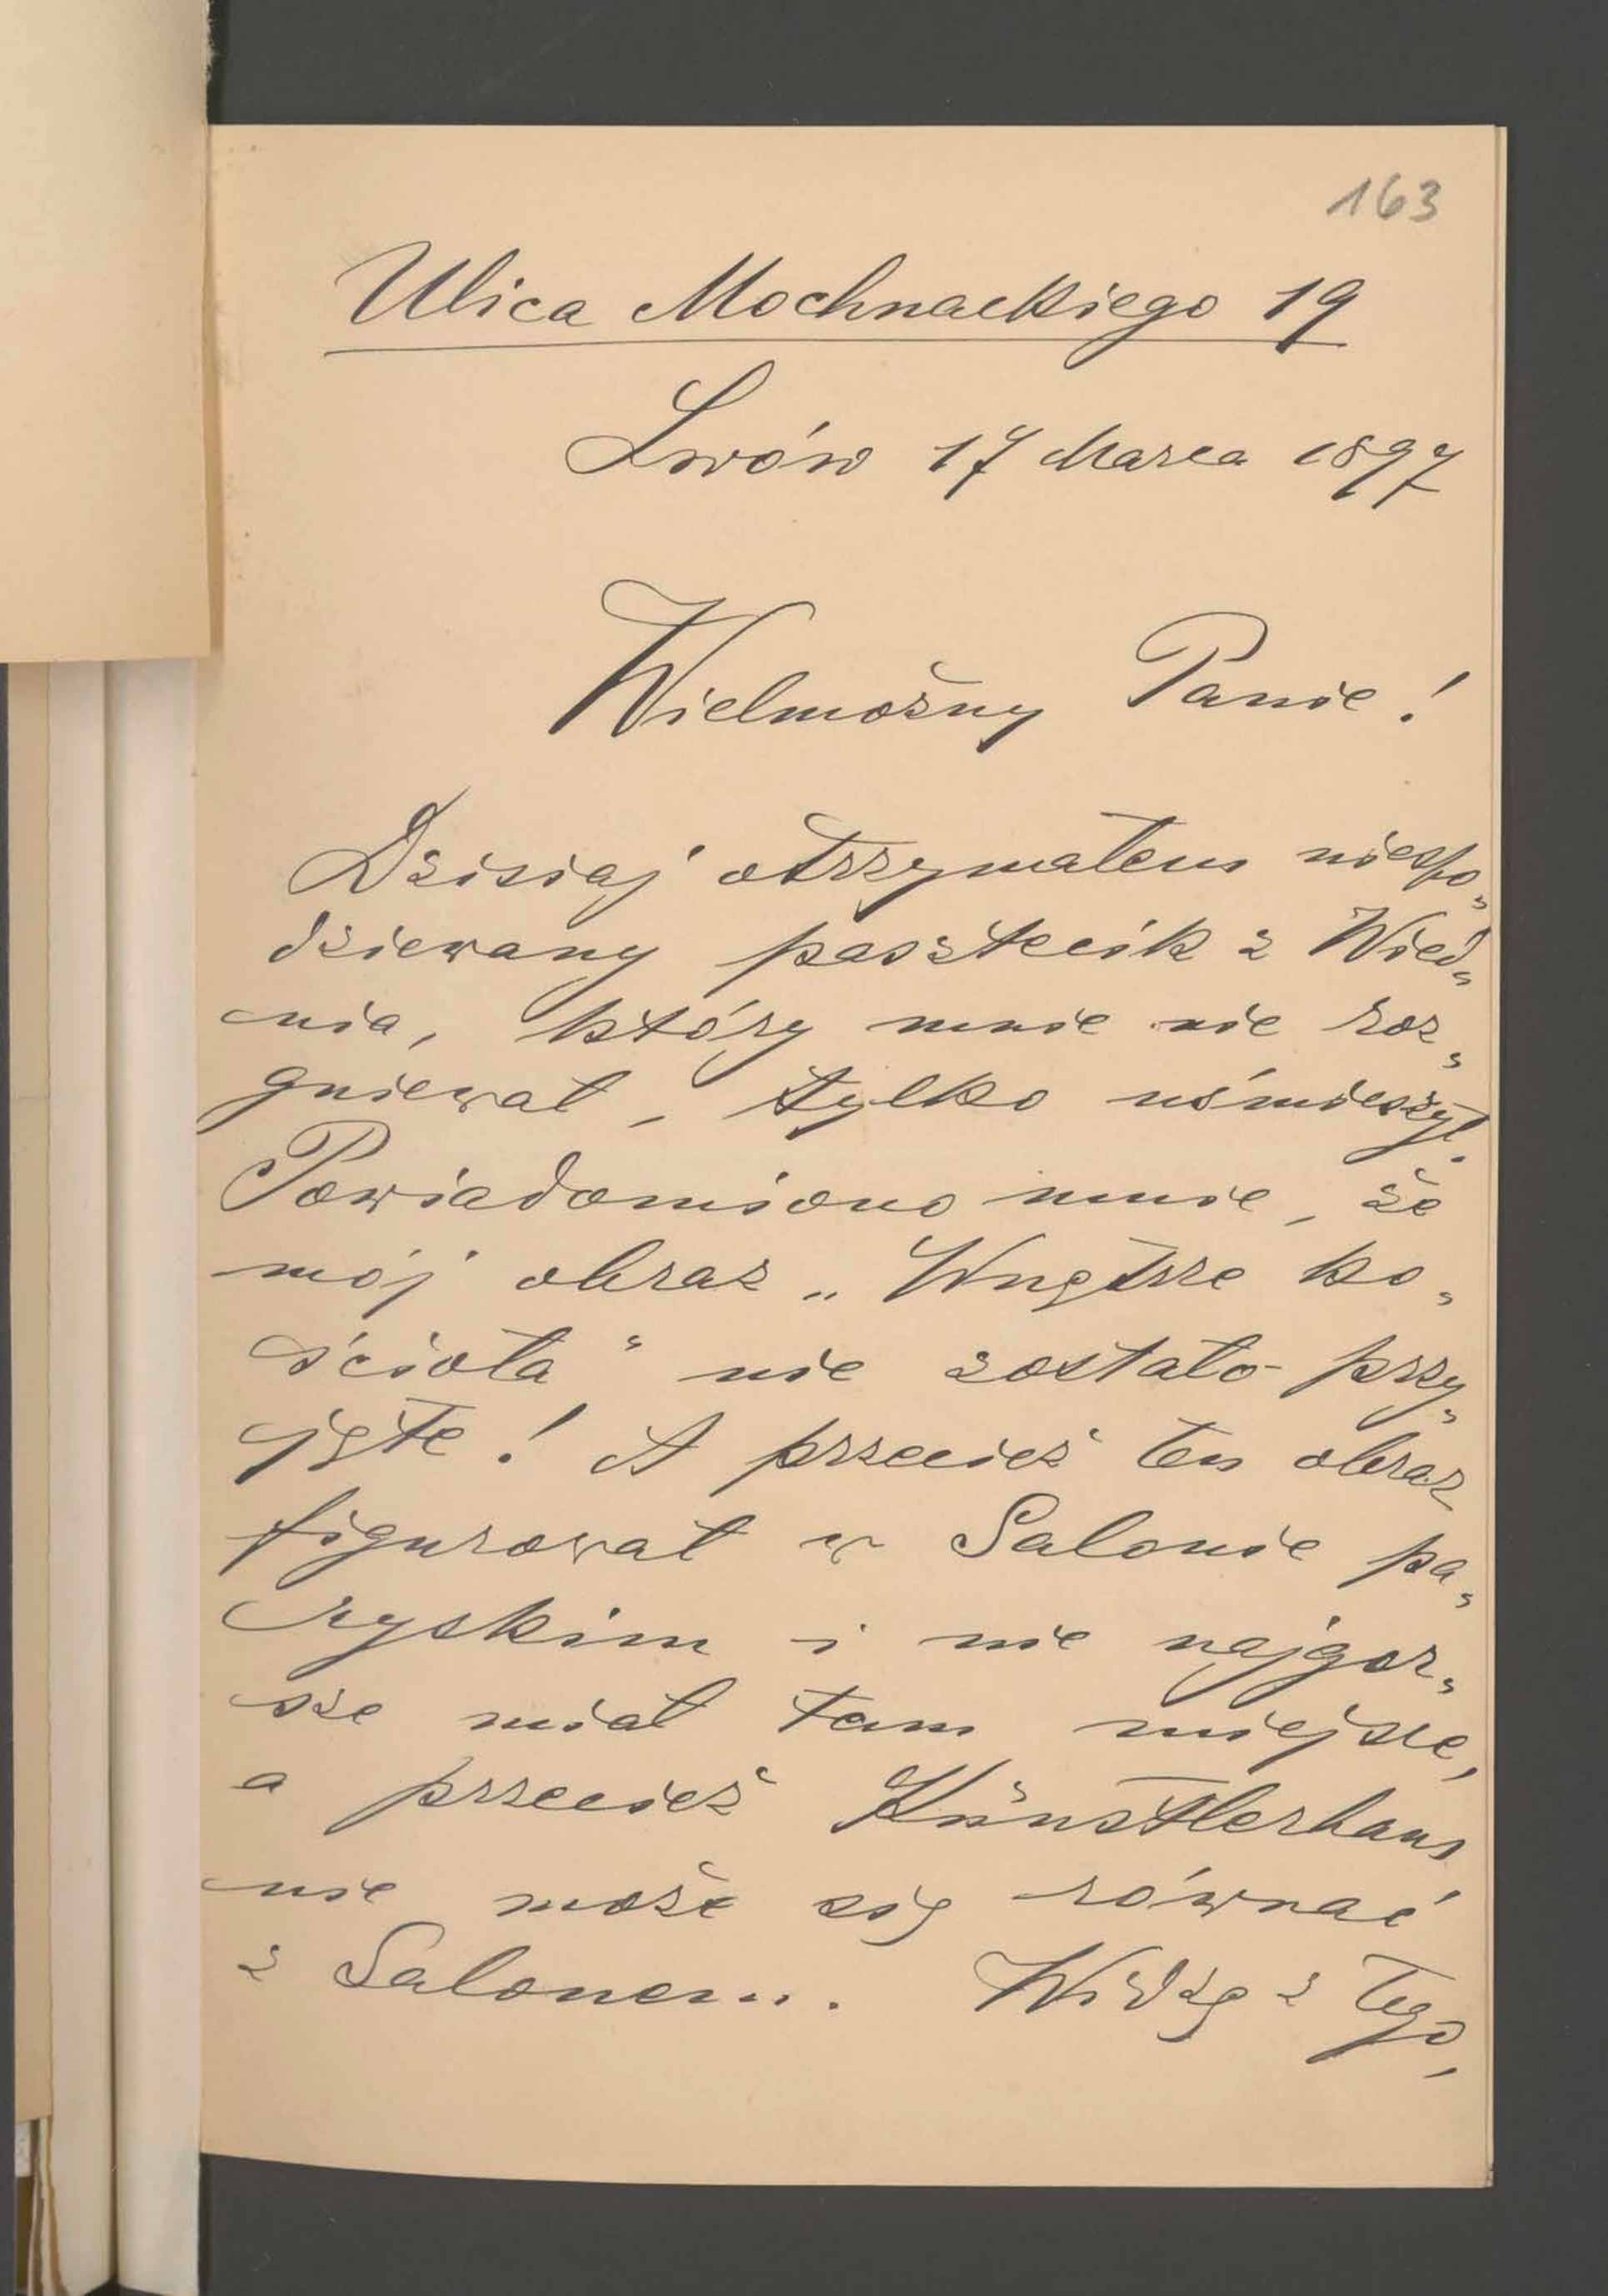 163
Ulica Mochnackiego 19
Lwów 17 Marca 1897
Wielmożny Panie!
Dzisiaj otrzymałem niespo„
dziewany pasztecik z Wied„
nia, który mnie nie roz„
gniewał, tylko uśmieszył.
Powiadomiono mnie, że
mój obraz „Wnętrze ko„
ścioła" nie zostało przy„
jęte! A przecież ten obraz
figurował w Salonie pa„
ryskim i nie najgor„
sze miał tam miejsce,
a przecież Künstlerhaus
nie może się równać
z Salonem. Widzę z tego,